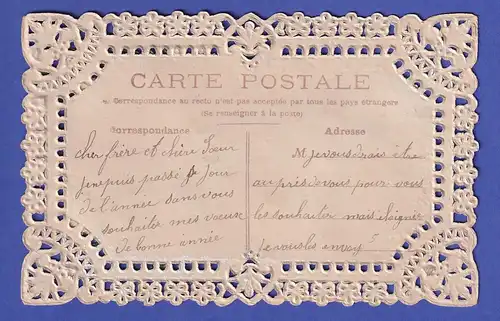 CARTE POSTALE
Correspondance au recto n'est pas acceptée par tous les pays étrangers
(Se renseigner à la poste)
Correspondance
cher frère et chère Sœur
je ne puis passé le jour
de l'année sans vous
souhaiter mes voeuse
de bonne année
Adresse
M je voudrais être
au près de vous pour vous
les souhaiter mais éloigner
je vous les envoy